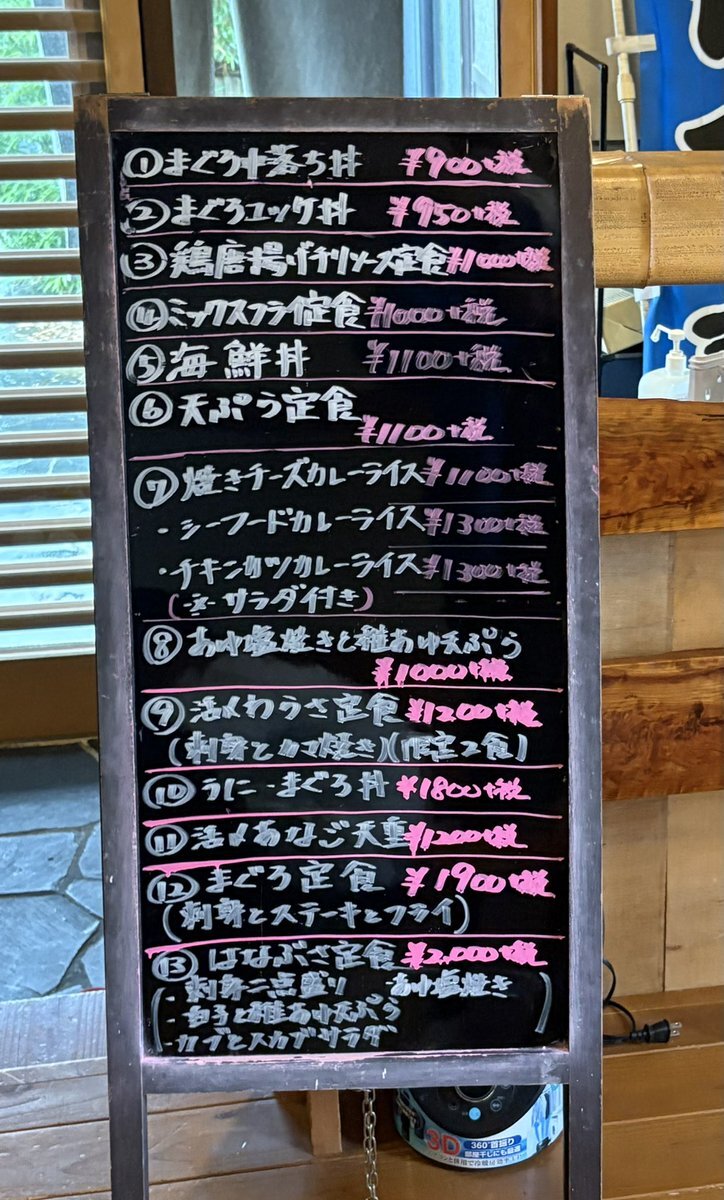 ①まぐろ中落ち丼 ¥900+税
②まぐろユッケ丼 ¥950+税
③鶏唐揚げチリソース定食¥1000+税
④ミックスフライ定食¥1000+税
⑤海鮮丼 ¥1100+税
⑥天ぷら定食
¥1100+税
⑦焼きチーズカレーライス¥1100+税
・シーフードカレーライス¥1300+税
・チキンカツカレーライス¥1300+税
サラダ付き)
⑧あゆ塩焼きと稚あゆ天ぷら
¥1000+税
⑨活〆わらさ定食¥1200+税
(刺身とカマ焼き)(限定2食)
⑩うに・まぐろ丼 ¥1800+税
⑪活〆あなご天重¥1200+税
⑫まぐろ定食 ¥1900+税
(刺身とステーキとフライ)
⑬はなぶさ定食¥2,000+税
・刺身二点盛り ・あゆ塩焼き
・白子と稚あゆ天ぷら
・カブとスカブサラダ
3D
360°首振り
部屋干しにも最適